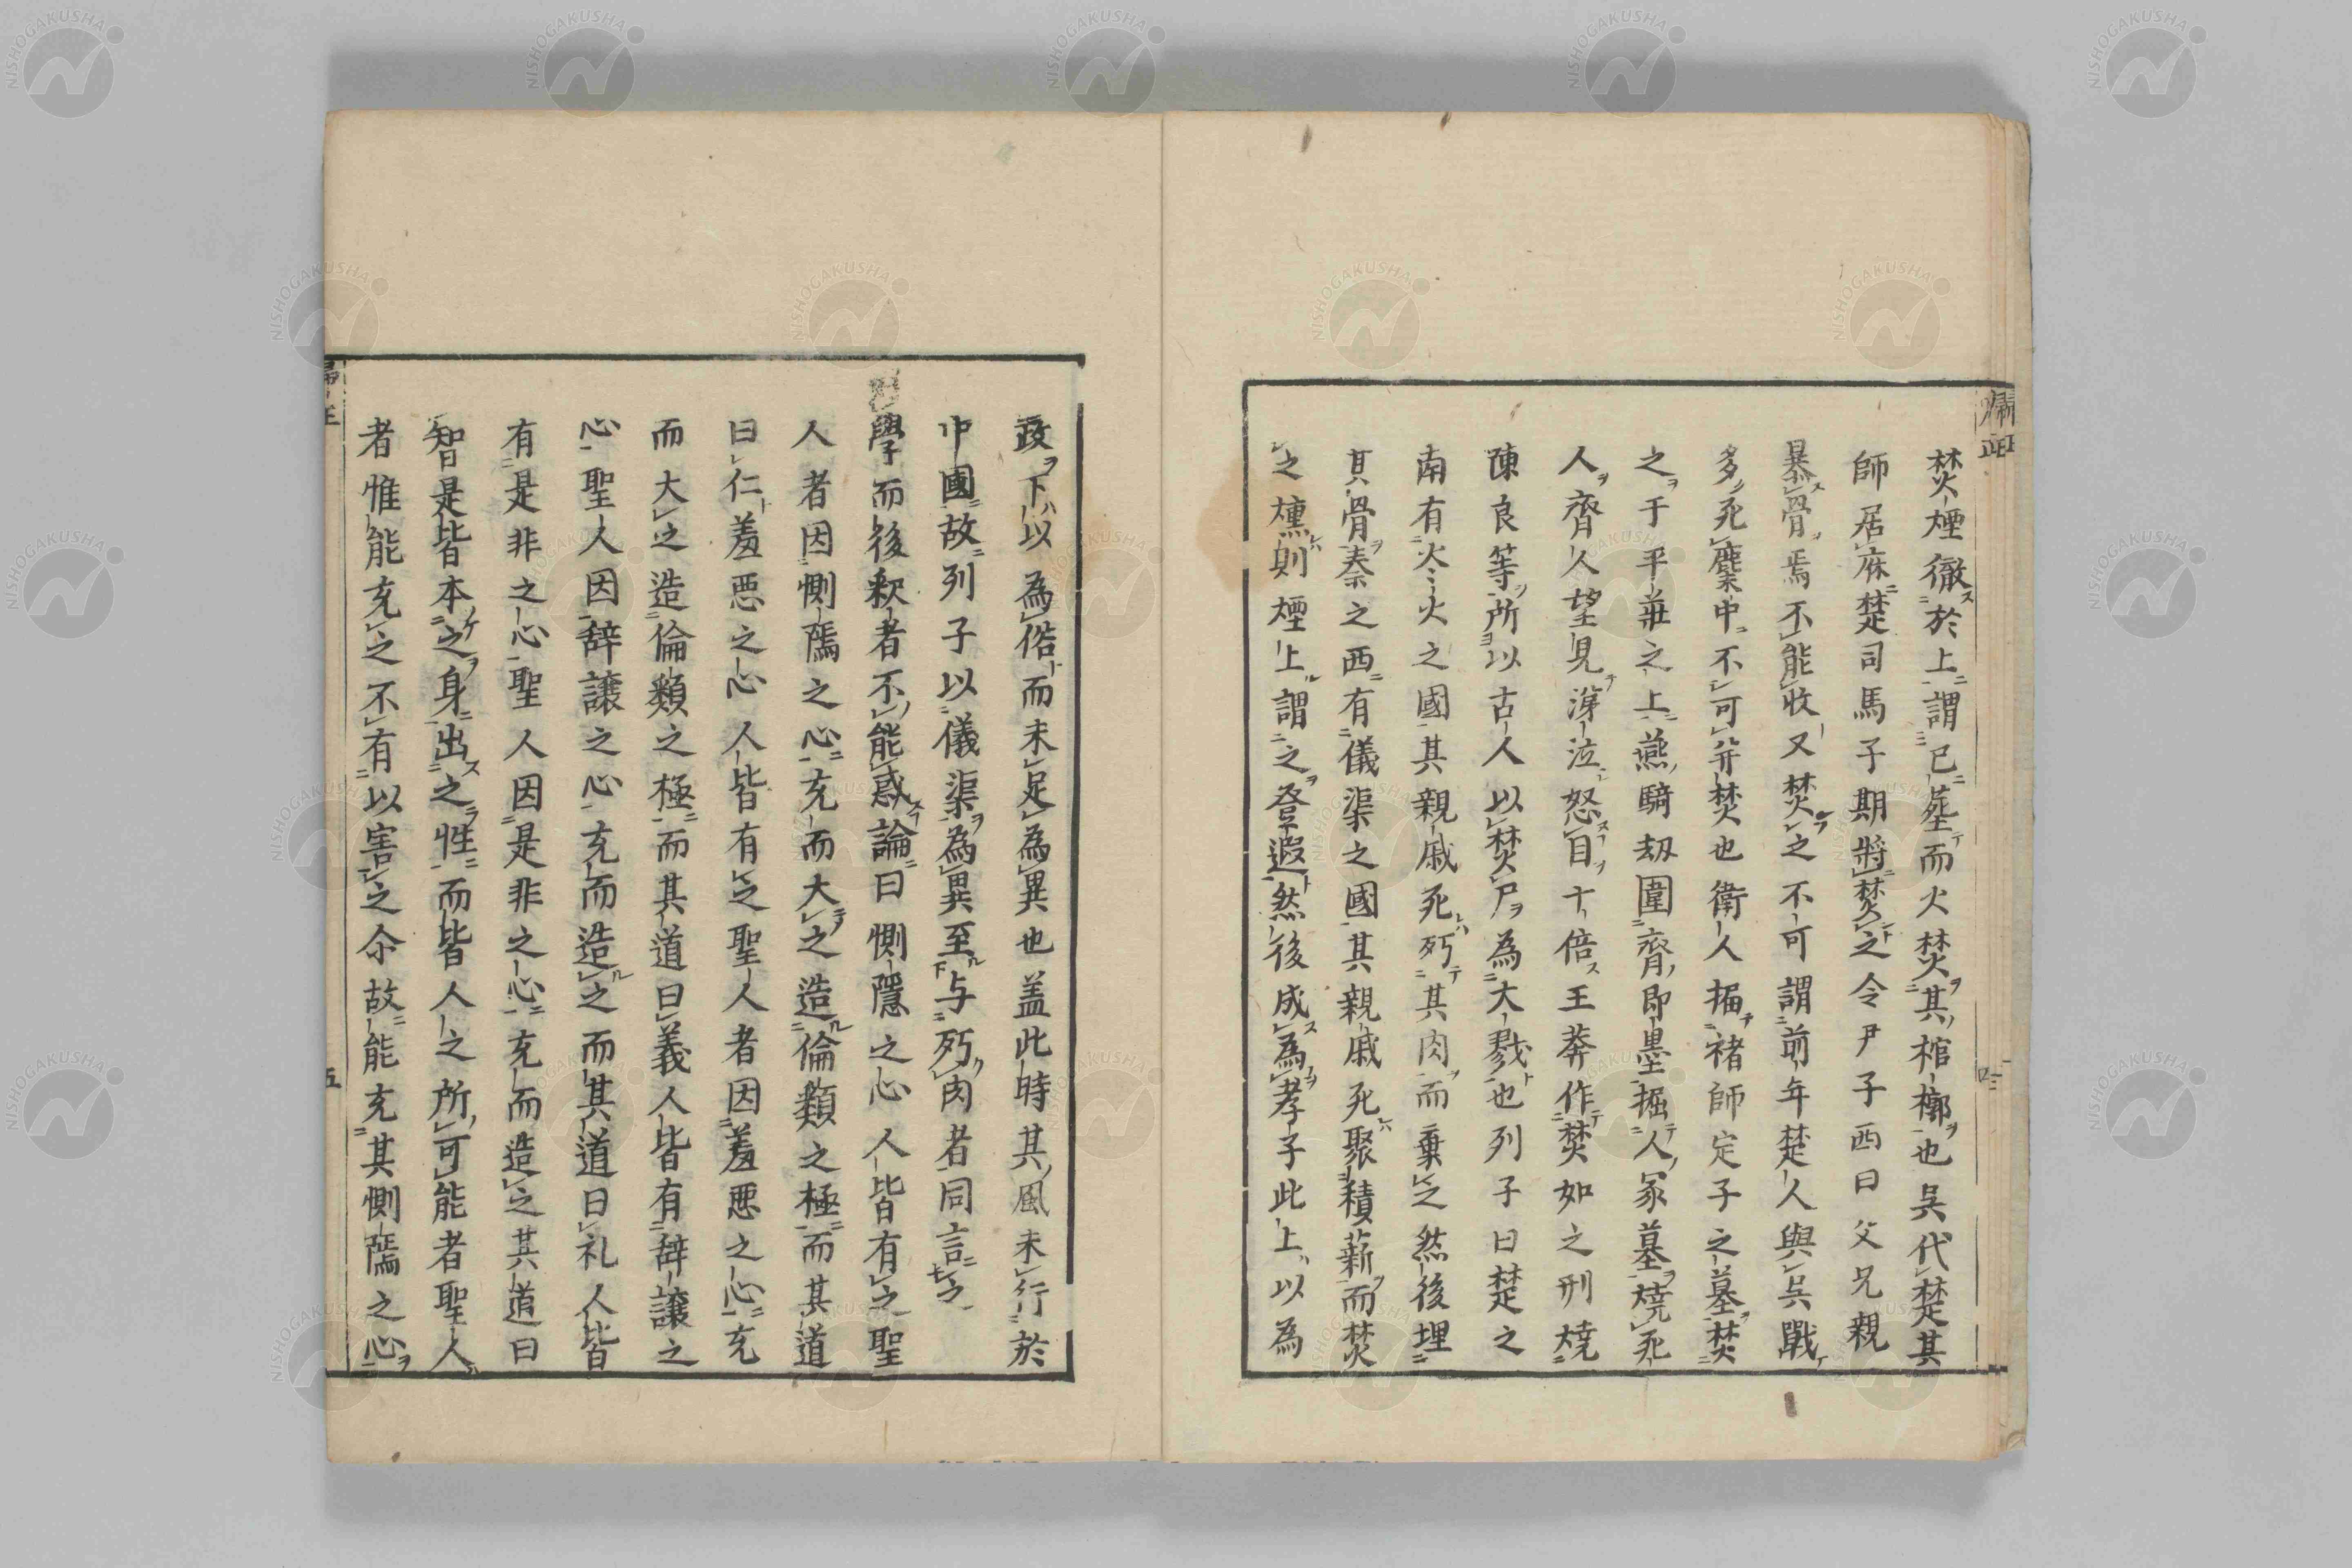 焚煙徹於上謂已塟而火焚其棺槨也呉代楚其
師居麻楚司馬子期將焚之令尹子西曰父兄親
暴骨焉不能收又焚之不可謂前年楚人與呉戰
多死麇中不可并焚也衛人掘褚師定子之墓焚
之于平莊之上燕騎劫圍齊即墨掘人冢墓燒死
人齊人望見涕泣怒自十倍王莽作焚如之刑燒
陳良等所以古人以焚尸為大戮也列子曰楚之
南有火火之國其親戚死朽其肉而棄之然後埋
其骨秦之西有儀渠之國其親戚死聚積薪而焚
之燻則煙上謂之登遐然後成為孝子此上以為
政下以為俗而未足為異也盖此時其風未行於
中國故列子以儀渠為異至与朽肉者同言之
學而後釈者不能惑論曰惻隱之心人皆有之聖
人者因惻隱之心充而大之造倫類之極而其道
曰仁羞悪之心人皆有之聖人者因羞悪之心充
而大之造倫類之極而其道曰義人皆有辞譲之
心聖人因辞譲之心充而造之而其道曰礼人皆
有是非之心聖人因是非之心充而造之其道曰
智是皆本之身出之性而皆人之所可能者聖人
者惟能充之不有以害之尒故能充其惻隱之心
歸正
四
五
NISHOGAKUSHA